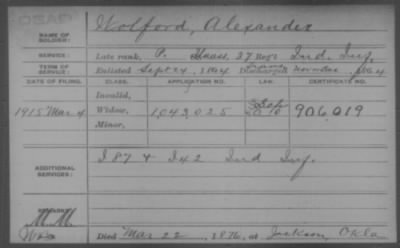 DSAD
NAME OF SOLDIER: Wolford, Alexander
SERVICE: Late rank, P. 37 Regt Ind. Inf.
TERM OF SERVICE: Enlisted Sept 24, 1864 Discharged 1864
DATE OF FILING. CLASS. APPLICATION NO. LAW. CERTIFICATE NO.
Invalid,
1915 Mar 4 Widow, 1,043,025 906,019
Minor,
ADDITIONAL SERVICES: I 87 & I 42 Ind Inf.
REMARKS:
Died Mar 22, 1876, at Jackson, Okla